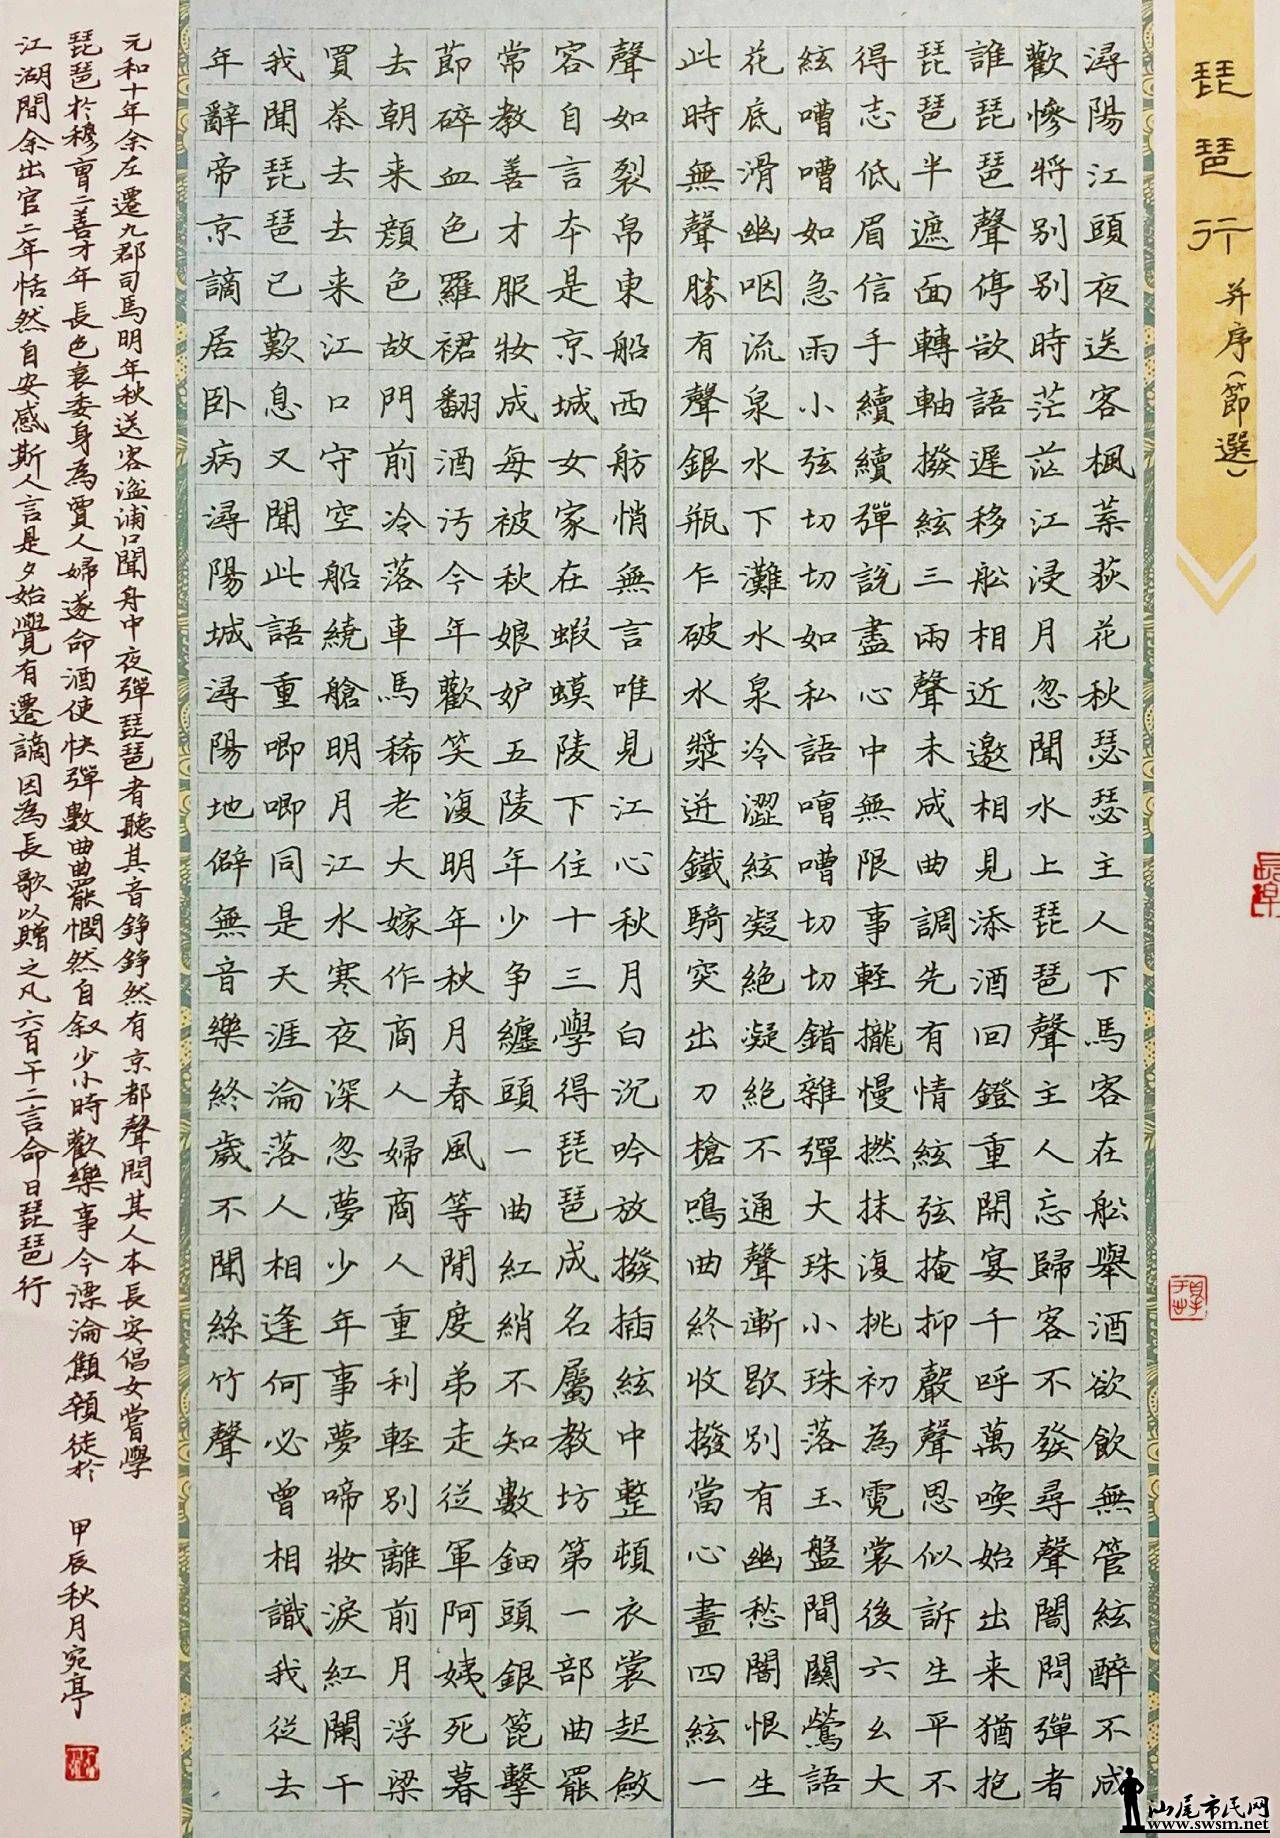 琵琶行 并序(節選)
潯陽江頭夜送客楓葉荻花秋瑟瑟主人下馬客在舩舉酒欲飲無管絃醉不成
歡慘將別別時茫茫江浸月忽聞水上琵琶聲主人忘歸客不發尋聲闇問彈者
誰琵琶聲停欲語遲移舩相近邀相見添酒回鐙重開宴千呼萬喚始出来猶抱
琵琶半遮面轉軸撥絃三兩聲未成曲調先有情絃弦掩抑聲聲思似訴生平不
得志低眉信手續續彈說盡心中無限事輕攏慢撚抹復挑初為霓裳後六幺大
絃嘈嘈如急雨小弦切切如私語嘈嘈切切錯雜彈大珠小珠落玉盤間關鶯語
花底滑幽咽流泉水下灘水泉冷澀絃凝絕凝絕不通聲漸歇別有幽愁闇恨生
此時無聲勝有聲銀瓶乍破水漿迸鐵騎突出刀槍鳴曲終收撥當心畫四絃一
聲如裂帛東船西舫悄無言唯見江心秋月白沉吟放撥插絃中整頓衣裳起斂
容自言本是京城女家在蝦蟆陵下住十三學得琵琶成名屬教坊第一部曲罷
常教善才服妝成每被秋娘妒五陵年少争纏頭一曲紅綃不知數鈿頭銀篦擊
節碎血色羅裙翻酒汚今年歡笑復明年秋月春風等閒度弟走從軍阿姨死暮
去朝来顔色故門前冷落車馬稀老大嫁作商人婦商人重利輕別離前月浮梁
買茶去去来江口守空船繞艙明月江水寒夜深忽夢少年事夢啼妝淚紅闌干
我聞琵琶已歎息又聞此語重唧唧同是天涯淪落人相逢何必曾相識我從去
年辭帝京謫居卧病潯陽城潯陽地僻無音樂終歲不聞絲竹聲
元和十年余左遷九郡司馬明年秋送客湓浦口聞舟中夜彈琵琶者聽其音錚錚然有京都聲問其人本長安倡女嘗學
琵琶於穆曹二善才年長色衰委身為賈人婦遂命酒使快彈數曲曲罷憫然自叙少小時歡樂事今漂淪顦顇徙於
江湖間余出官二年恬然自安感斯人言是夕始覺有遷謫因為長歌以贈之凡六百一十二言命曰琵琶行
甲辰秋月宛亭
汕尾市民网
www.swsm.net